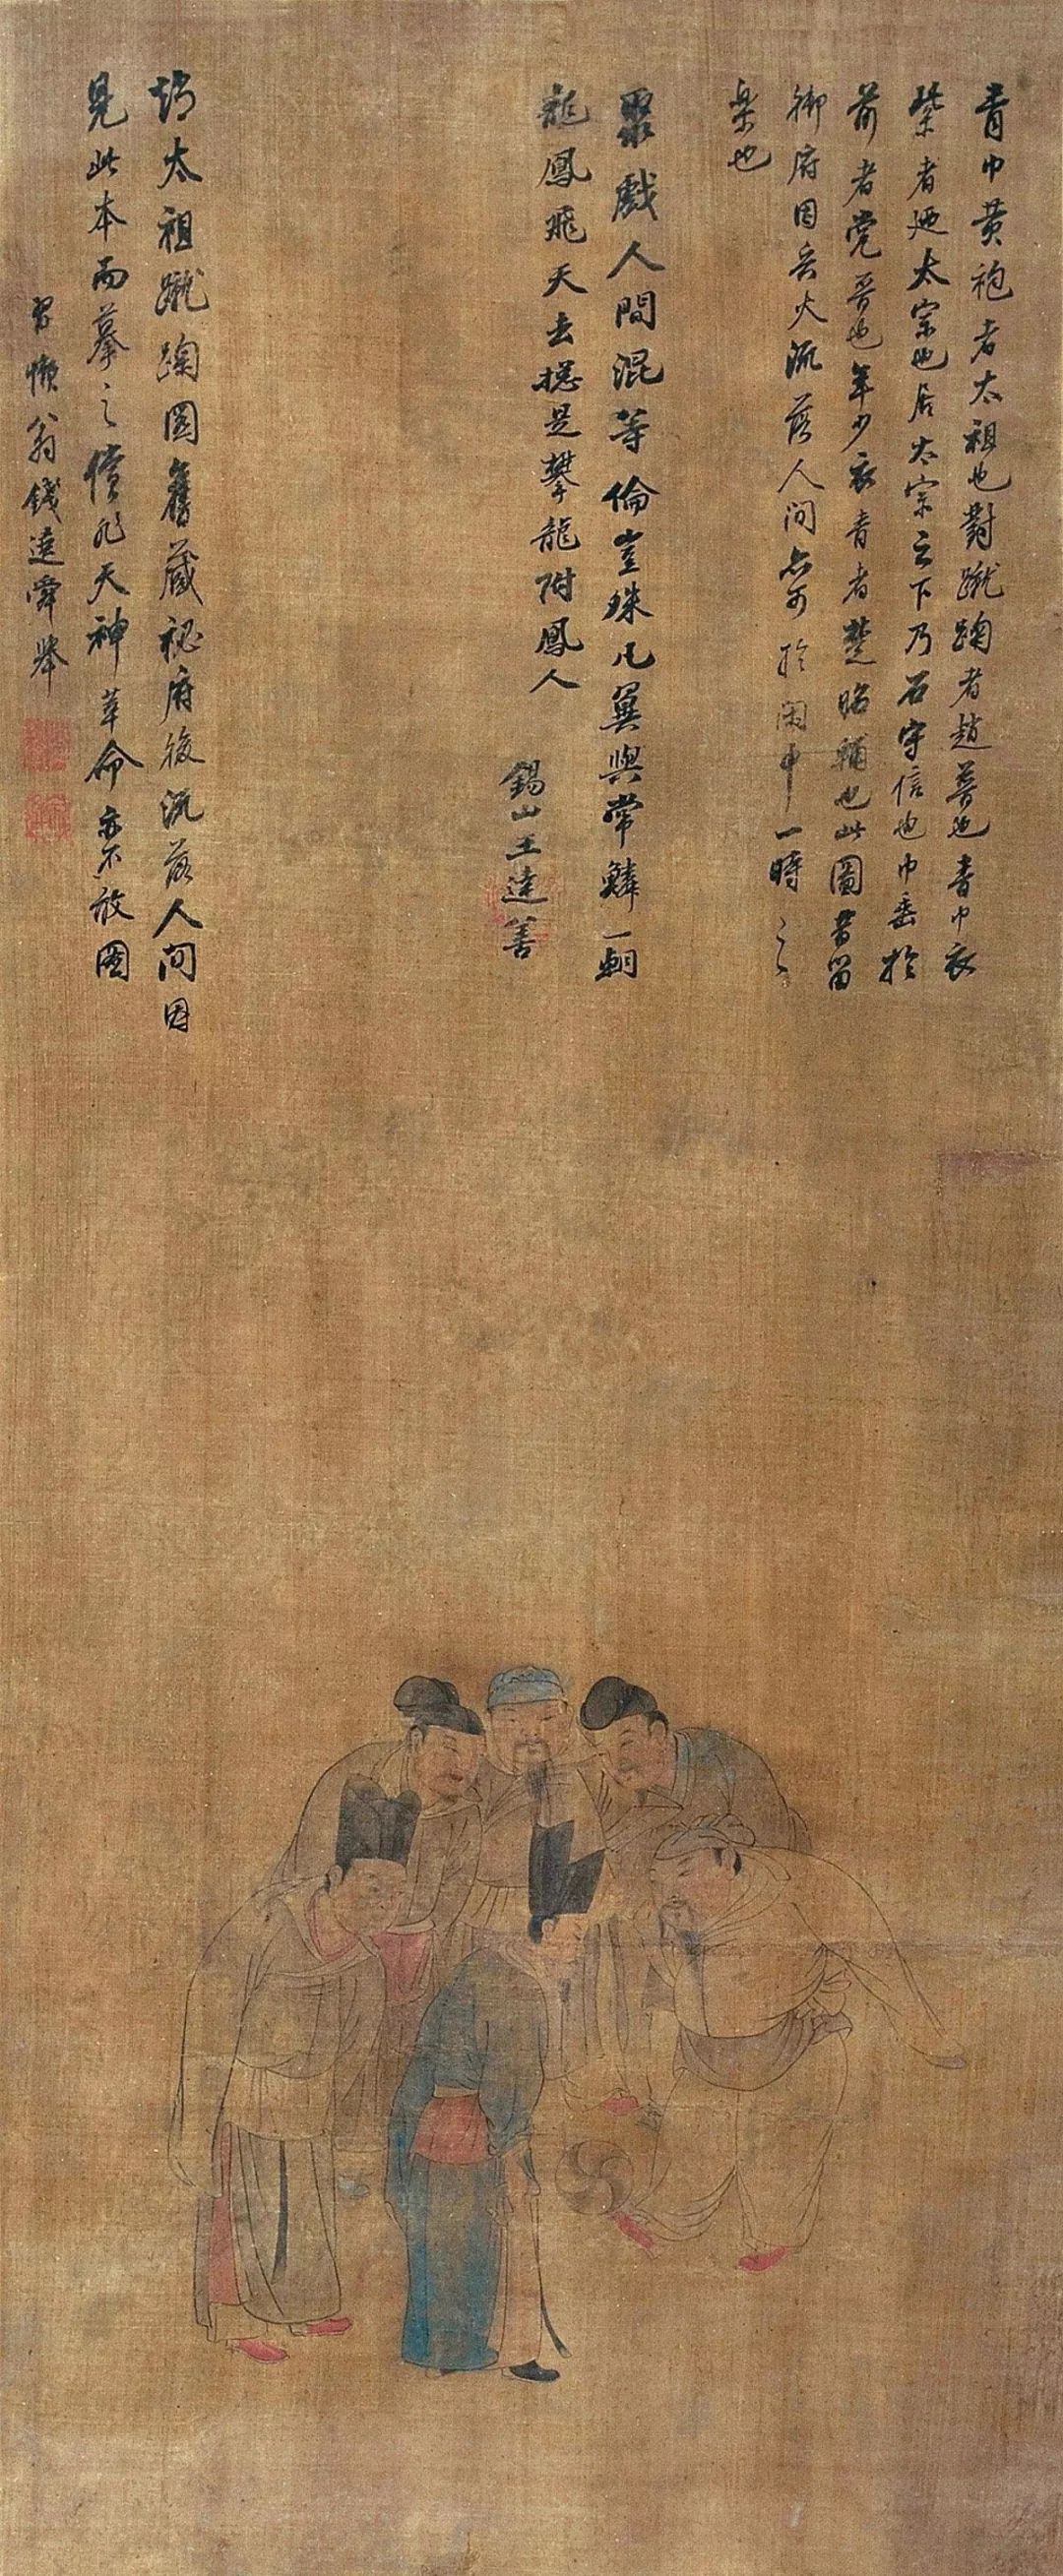 青巾黄袍者太祖也對蹴踘者趙普也青巾衣
紫者廼太宗也居太宗之下乃石守信也巾垂於
前者党晋也年少衣青者楚昭輔也此圖昔留
御府因兵火流落人间亦可於閑中一時之
樂也
聚戲人間混等倫豈殊凡翼與常鱗一朝
龍鳳飛天去摠是攀龍附鳳人
錫山王達善
太祖蹴踘圖舊藏祕府後流落人间因
見此本而摹之儻非天神革命亦不敢圖
習懶翁錢選舜举